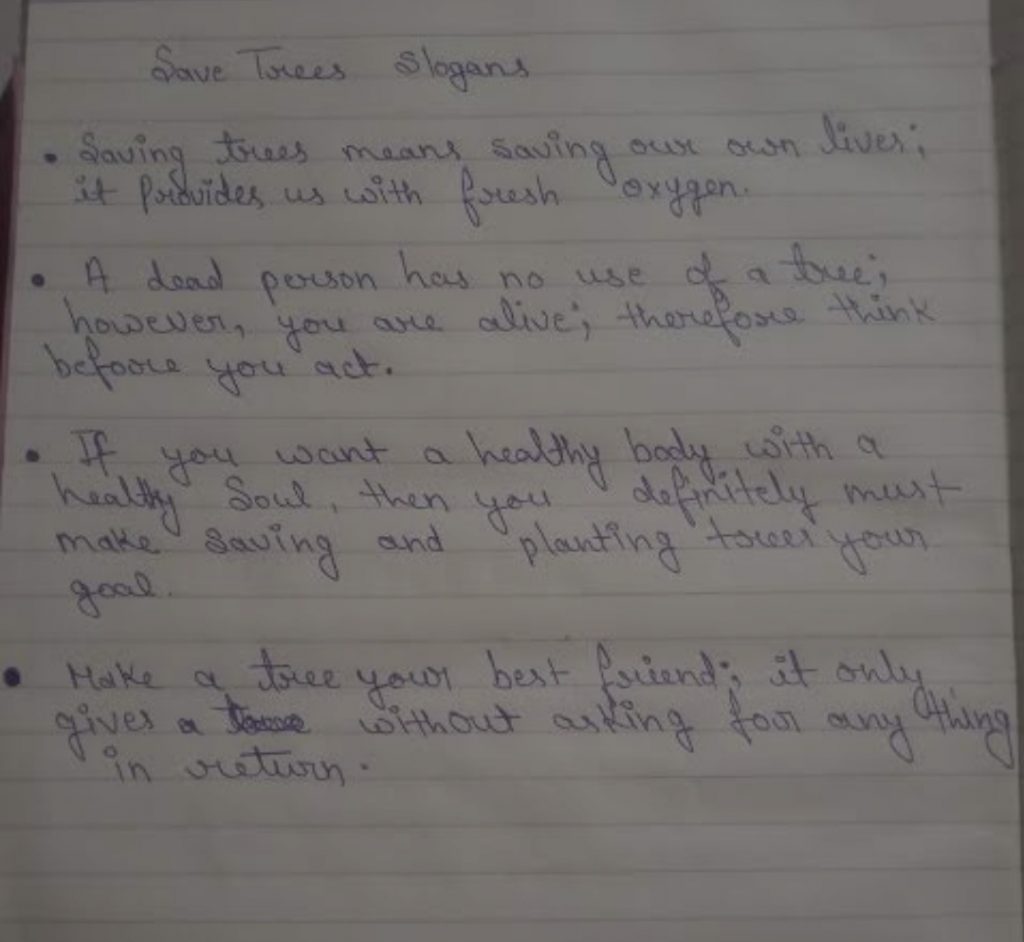 Save Trees Slogans
• Saving trees means saving our own lives;
it provides us with fresh oxygen.
• A dead person has no use of a tree;
however, you are alive; therefore think
before you act.
• If you want a healthy body with a
healthy Soul, then you definitely must
make saving and planting trees your
goal.
• Make a tree your best friend; it only
gives a without asking for any thing
in return.